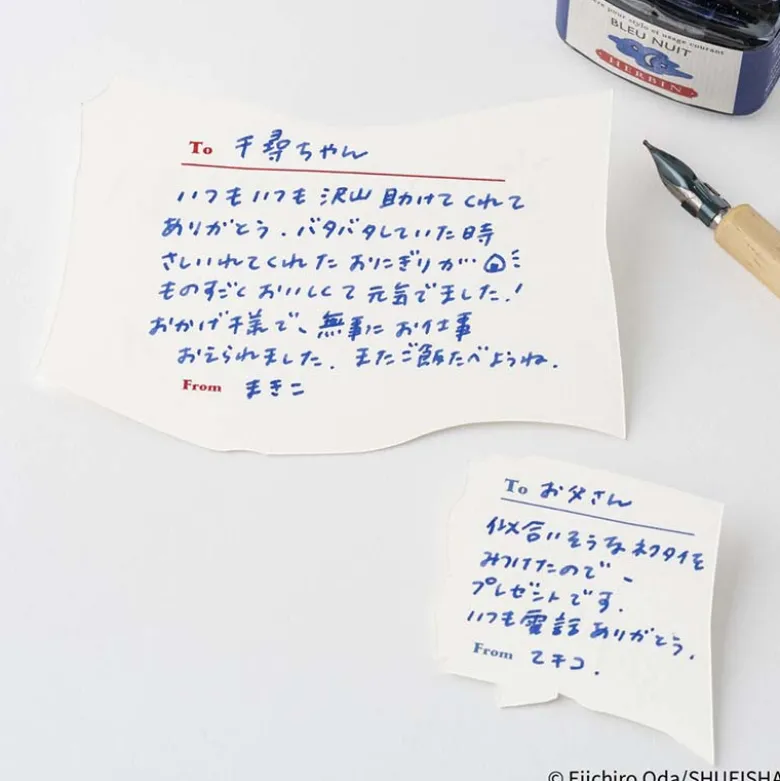 pour style et usage courant
BLEU NUIT
HERBIN
To 千尋ちゃん
いつもいつも 沢山 助けてくれて
ありがとう. バタバタしていた時
さしいれてくれた おにぎりが…
ものすごく おいしくて 元気でました!
おかげ様で、無事に お仕事
おえられました. またご飯たべようね.
From まきこ
To お父さん
似合いそうなネクタイを
みつけたので
プレゼントです.
いつも電話ありがとう.
From
© Eiichiro Oda/SHUEISHA